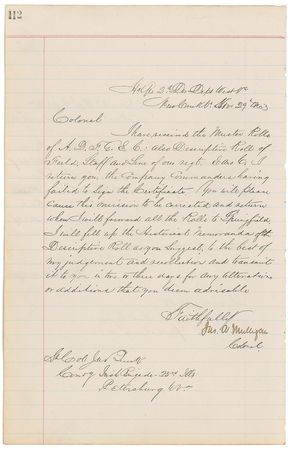 112
Hdqrs 2nd Div Dept West Va
New Creek Va Nov 29 1863
Colonel
I have received the Muster Rolls
of A. D. F. G. & C: also Descriptive Roll of
Field, Staff and Line of our regt.
return you, the Company Commanders having
failed to sign the Certificate. You will please
cause this omission to be corrected and return
when I will forward all the Rolls to Springfield.
I will fill up the Historical Memoranda of the
Descriptive Roll as you suggest, to the best of
my judgement and recollection and transmit
it to you in two or three days for any alterations
or additions that you deem advisable
Faithfully
Jas. A Mulligan
Colonel
Lt Col Jas Quirk
Comdg 23rd Ills
Petersburg Va